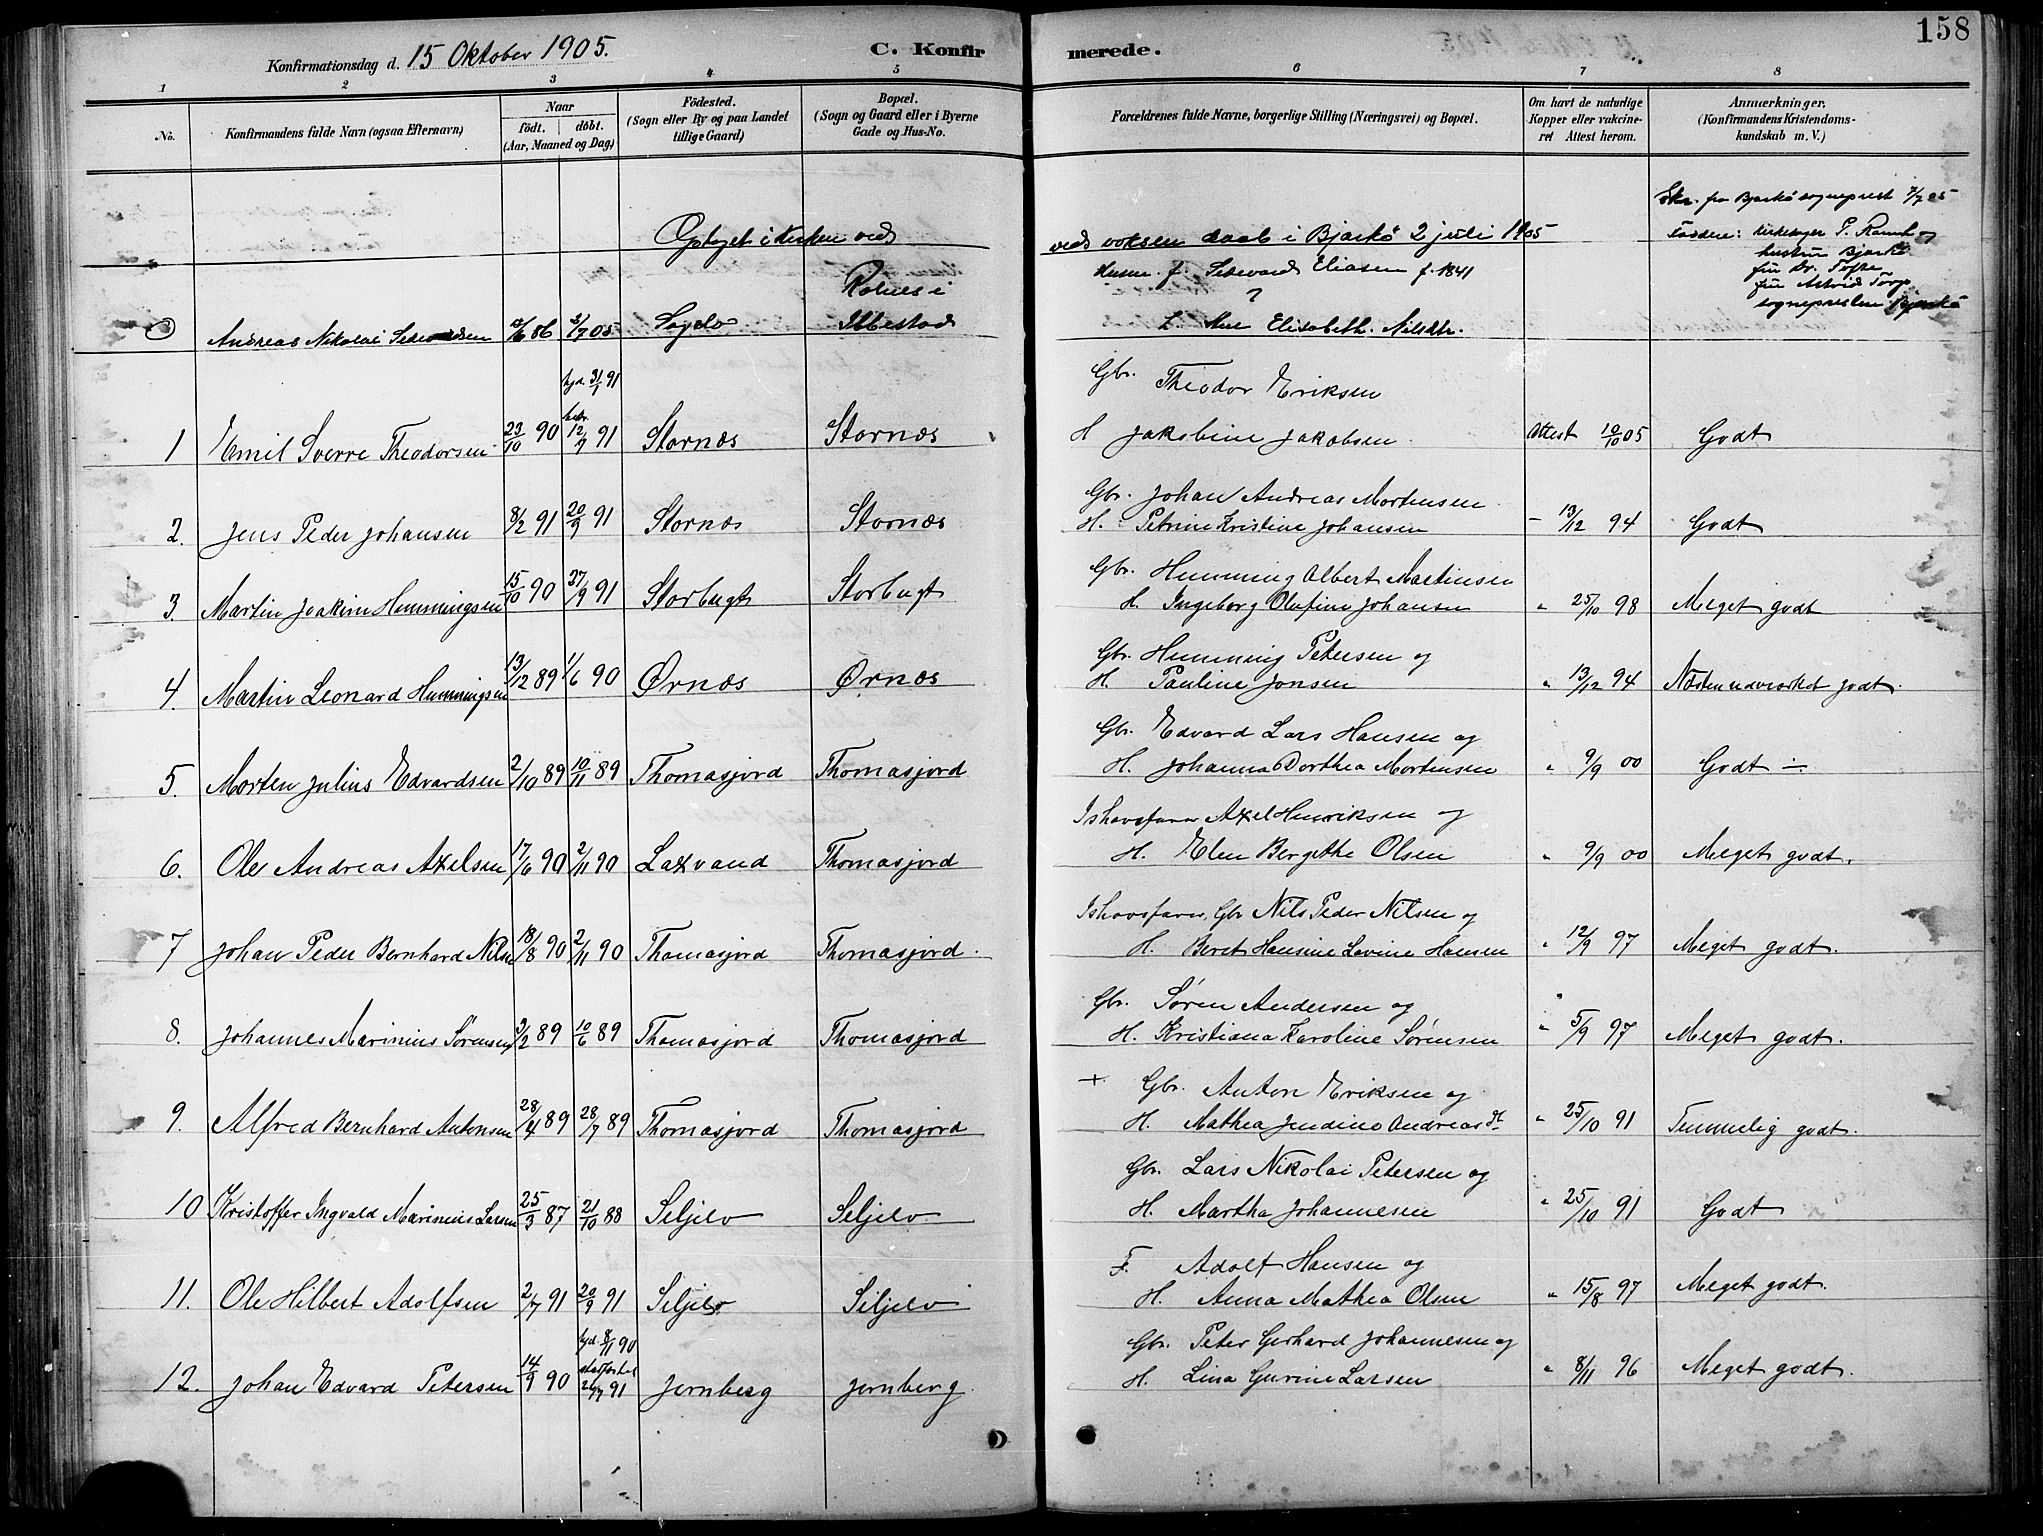 158
Konfirmationsdag d. 15 Oktober 1905.
C. Konfirmerede.
1 2 3 4 5 6 7 8
No.
Konfirmandens fulde Navn (ogsaa Efternavn)
Naar
født. døbt.
(Aar, Maaned og Dag)
Fødested.
(Sogn eller By og paa Landet
tillige Gaard)
Bopæl.
(Sogn og Gaard eller i Byerne
Gade og Hus-No.
Forældrenes fulde Navne, borgerlige Stilling (Næringsvei) og Bopæl.
Om havt de naturlige
Kopper eller vakcine-
ret Attest herom.
Anmærkninger,
(Konfirmandens Kristendoms-
kundskab m. V.)
Optaget i kirken ved
ved voksen daab i Bjarkö 2 juli 1905
Skr. fra Bjarkö sogneprest 7/7 05
Faddere: kirkesanger P.
hustru Bjarkö
fru Dr.
fru Astrid
sognepresten Bjarkö
Andreas Nikolai 86 2/7 05 Ibbestad
Eliasen f. 1841
Elisabeth Nilsdtr.
1 Emil Sverre Theodorsen 23/10 90 hjd. 31/1 91 12/9 91 Stornæs Stornæs
Gbr. Theodor Eriksen
H Jakobine Jakobsen Attest 12/10 05 Godt
2. Jens Peder Johansen 8/2 91 20/9 91 Stornæs Stornæs
Gbr. Johan Andreas Mortensen
H. Petrine Kristine Johansen - 13/12 94 Godt
3. Martin Joakim Hemmingsen 15/10 90 27/9 91 Storbugt Storbugt
Gbr. Hemming Albert Martinsen
H. Ingeborg Olufine Johansen " 25/10 98 Meget godt
4. Martin Leonard Hemmingsen 13/12 89 1/6 90 Ørnæs Ørnæs
Gbr. Hemming Petersen og
H. Pauline Jonsen " 13/12 94 Næsten udmærket godt.
5. Morten Julius Edvardsen 2/10 89 10/11 89 Thomasjord Thomasjord
Gbr. Edvard Lars Hansen og
H. Johanna Dorthea Mortensen " 9/9 00 Godt ÷
6. Ole Andreas Axelsen 17/6 90 2/11 90 Laxvand Thomasjord
Ishavsfarer Axel Henriksen og
H. Elen Bergethe Olsen " 9/9 00 Meget godt.
7 Johan Peder Bernhard Nilsen 18/8 90 2/11 90 Thomasjord Thomasjord.
Ishavsfarer, Gbr Nils Peder Nilsen og
H. Beret Hansine Lovine Hansen " 12/9 97 Meget godt.
8. Johannes Marinius Sørensen 3/2 89 10/6 89 Thomasjord Thomasjord
Gbr. Søren Andersen og
H. Kristiana Karoline Sørensen " 5/9 97 Meget godt.
9. Alfred Bernhard Antonsen 28/4 89 28/7 89 Thomasjord Thomasjord
+. Gbr. Anton Eriksen og
H. Mathea Jendine Andreasdt " 25/10 91 Temmelig godt.
10 Kristoffer Ingvald Marinius Larsen 25/3 87 21/10 88 Seljelv Seljelv
Gbr. Lars Nikolai Petersen og
H. Martha Johannesen " 25/10 91 Godt
11. Ole Hilbert Adolfsen 2/7 91 20/9 91 Seljelv Seljelv
F. Adolf Hansen og
H. Anna Mathea Olsen " 15/8 97 Meget godt.
12. Johan Edvard Petersen 14/9 90 hjd. 8/11 90 91 Jernberg Jernberg.
Gbr. Peter Gerhard Johannesen og
H. Lina Gurine Larsen " 8/11 96 Meget godt.